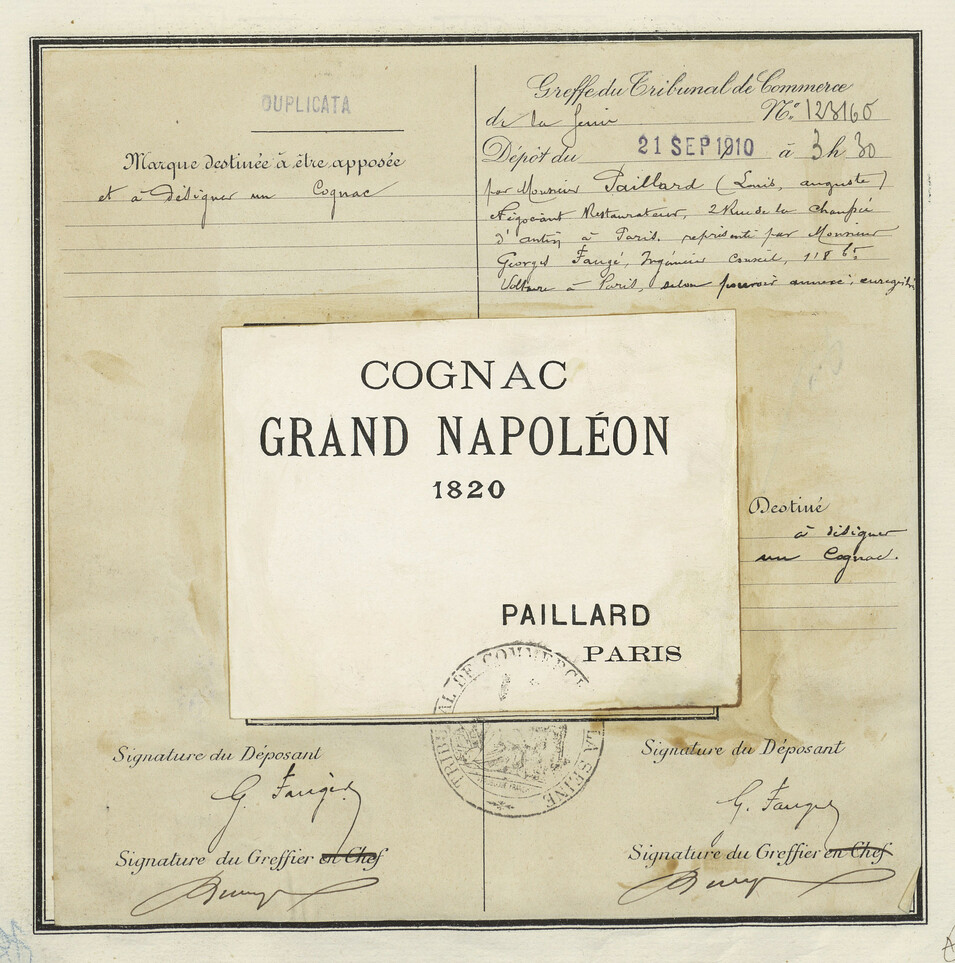 DUPLICATA
Marque destinée à être apposée
et à désigner un Cognac
Greffe du Tribunal de Commerce
de la Seine N° 123160
Dépôt du 21 SEP 1910 à 3 h 30
par Monsieur Paillard (Louis, auguste)
Négociant Restaurateur, 2 Rue de la Chaussée
d'antin à Paris, représenté par Monsieur
Georges Faugé, Ingénieur Conseil, 118 Bd
Voltaire à Paris, selon pouvoir annexé, enregistré
COGNAC
GRAND NAPOLÉON
1820
PAILLARD
PARIS
Destiné
à désigner
un Cognac.
TRIBUNAL DE COMMERCE LA SEINE
Signature du Déposant
G. Faugé
Signature du Greffier en Chef
Signature du Déposant
G. Faugé
Signature du Greffier en Chef